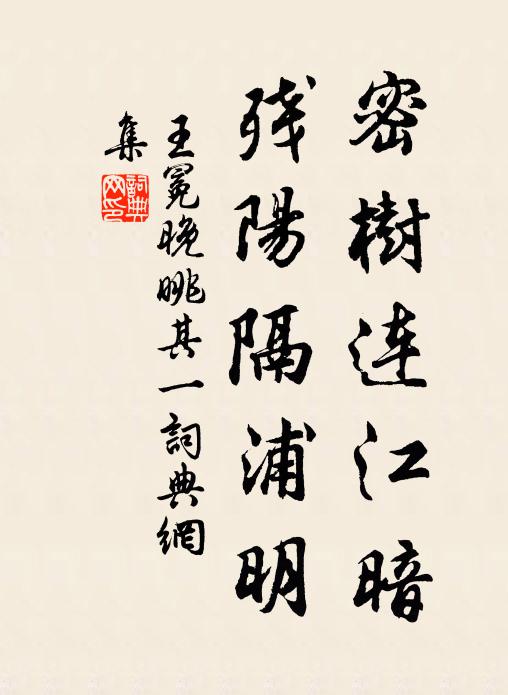 密樹连江暗
残陽隔浦明
王冕晚眺其一詞典網
集
詞典
网印